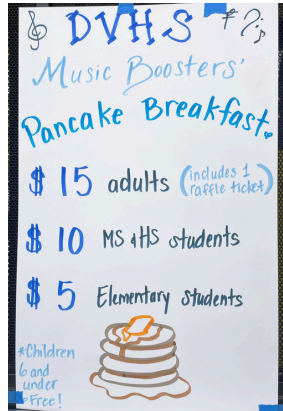 DVHS
Music Boosters'
Pancake Breakfast
$15 adults (includes 1
raffle ticket)
$10 MS & HS students
$5 Elementary Students
*Children
6 and
under
Free!